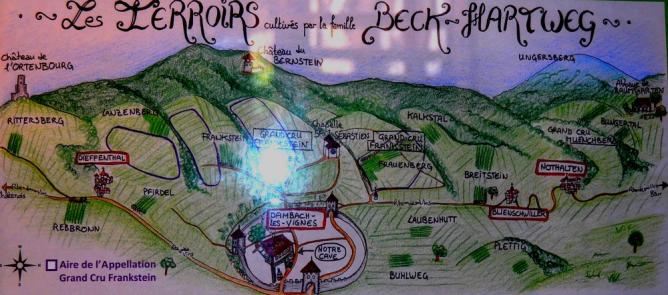 Les TERROIRS cultivés par la famille BECK-HARTWEG
Château de
l'ORTENBOURG
Château du
BERNSTEIN
UNGERSBERG
RITTERSBERG
LANZENBERG
FRANKSTEIN
GRAND CRU
FRANKSTEIN
Chapelle
SÉBASTIEN
GRAND CRU
FRANKSTEIN
FRAUENBERG
KALKSTAL
GRAND CRU
MUENCHBERG
BUNGERTAL
DIEFFENTHAL
PFIRDEL
REBBRONN
DAMBACH-
LES-VIGNES
NOTRE
CAVE
LAUBENHUTT
BUHLWEG
BREITSTEIN
BLIENSCHWILLER
NOTHALTEN
PLETTIG
Aire de l'Appellation
Grand Cru Frankstein